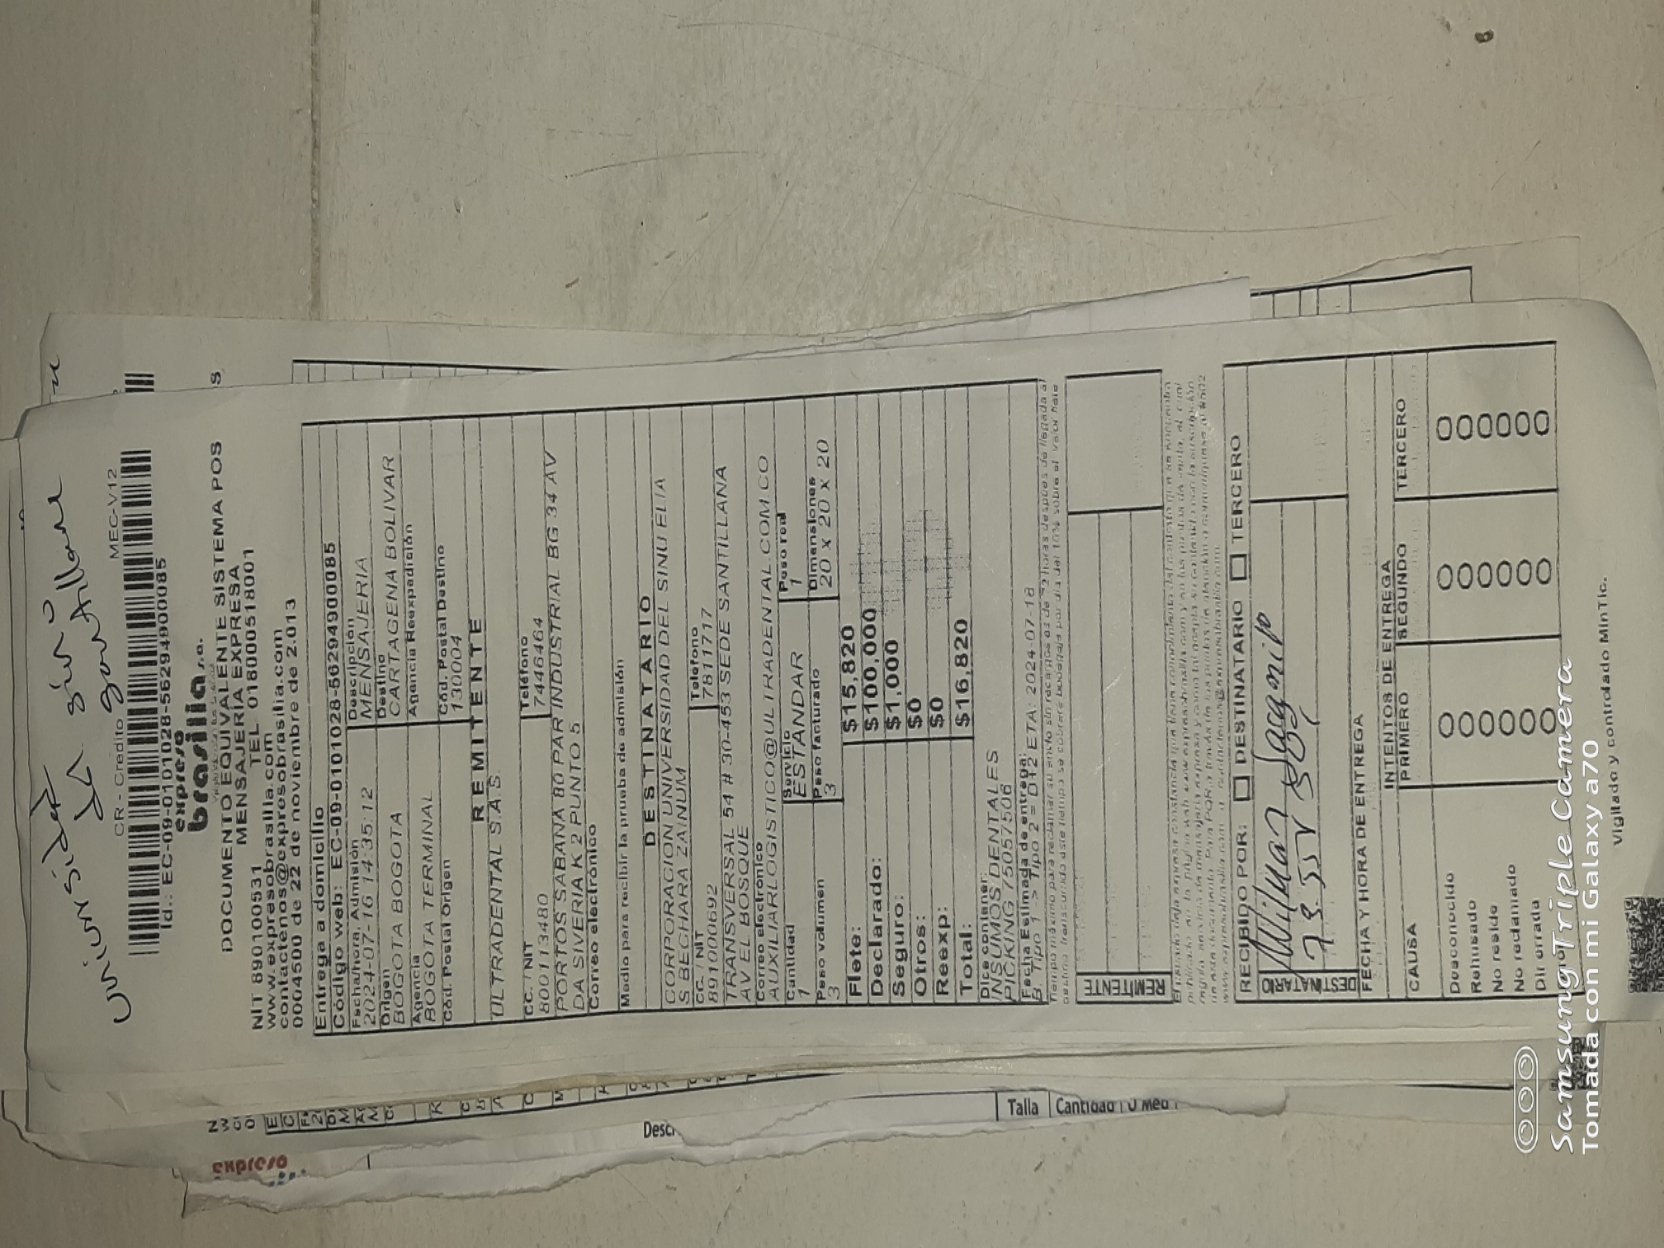 universidad
del sinú
santillana
CR - Credito MEC-V12
Id.: EC-09-0101028-56294900085
expreso
brasilia s.a.
DOCUMENTO EQUIVALENTE SISTEMA POS
MENSAJERIA EXPRESA
NIT 890100531 TEL. 018000518001
www.expresobrasilia.com
contactenos@expresobrasilia.com
004500 de 22 de noviembre de 2.013
Entrega a domicilio
Código web: EC-09-0101028-56294900085
Fecha/hora, Admisión Descripción
2024-07-16 14:35:12 MENSAJERIA
Origen Destino
BOGOTA BOGOTA CARTAGENA BOLIVAR
Agencia Agencia Reexpedición
BOGOTA TERMINAL
Cód. Postal Origen Cód. Postal Destino
130004
REMITENTE
ULTRADENTAL S.A.S.
CC. / NIT Teléfono
800113480 7446464
PORTOS SABANA 80 PAR INDUSTRIAL BG 34 AV
DA SIVERIA K 2 PUNTO 5
Correo electrónico
Medio para recibir la prueba de admisión
DESTINATARIO
CORPORACION UNIVERSIDAD DEL SINU ELIA
S BECHARA ZAINUM
CC. / NIT Telefono
891000692 7811717
TRANSVERSAL 54 # 30-453 SEDE SANTILLANA
AV EL BOSQUE
Correo electrónico
AUXILIARLOGISTICO@ULTRADENTAL.COM.CO
Cantidad Servicio Peso real
1 ESTANDAR 1
Peso volumen Peso facturado Dimensiones
3 3 20 x 20 x 20
Flete: $15,820
Declarado: $100,000
Seguro: $1,000
Otros: $0
Reexp: $0
Total: $16,820
Dice contener:
INSUMOS DENTALES
PICKING 75057506
Fecha Estimada de entrega:
B. Tipo 1 -> Tipo 2 = D12 ETA: 2024-07-18
Tiempo máximo para reclamar su envío sin recargos es de 72 horas despues de llegada a
REMITENTE
RECIBIDO POR: DESTINATARIO TERCERO
DESTINATARIO
FECHA Y HORA DE ENTREGA
INTENTOS DE ENTREGA
CAUSA PRIMERO SEGUNDO TERCERO
Desconocido
Rehusado
No reside
No reclamado
Dir errada
Vigilado y controlado MinTic.
expreso
Descr
Talla Cantidad U Med
Samsung Triple Camera
Tomada con mi Galaxy a70